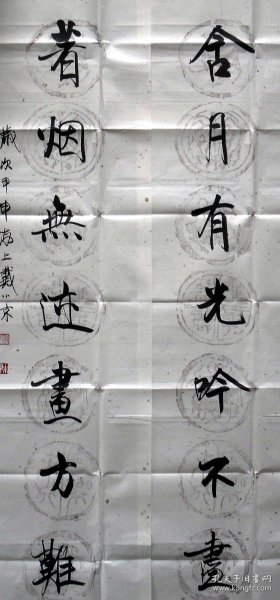 含月有光吟不盡
著烟無迹畫方難
歲次甲申海上戴小京
孔夫子旧书网